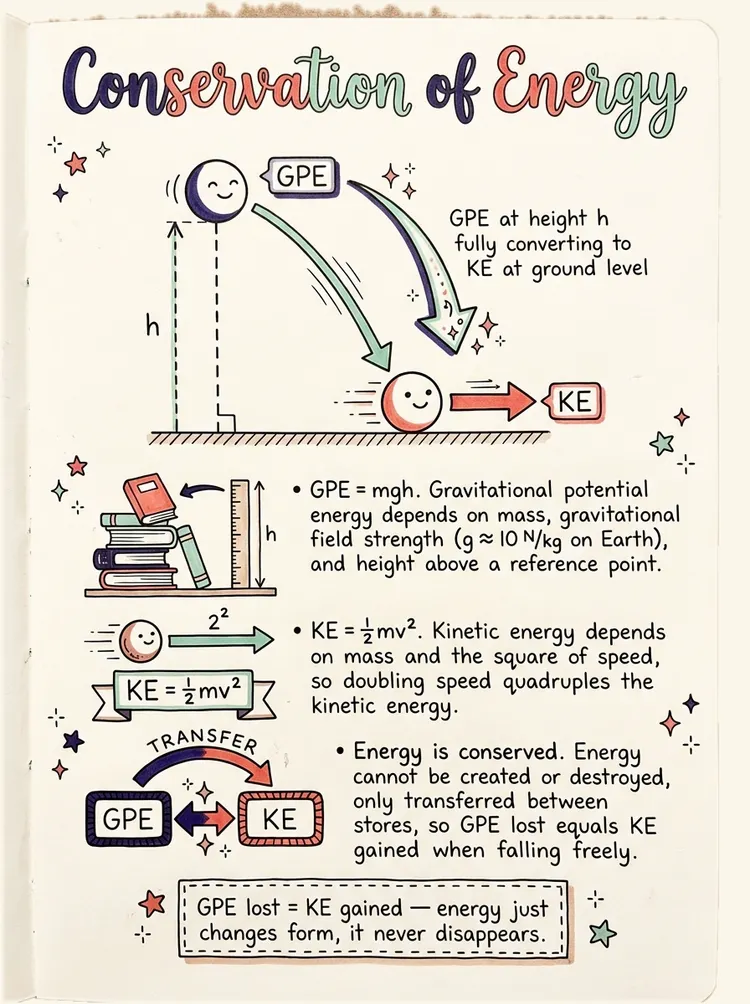 Conservation of Energy
GPE
GPE at height h
fully converting to
KE at ground level
h
KE
h
• GPE = mgh. Gravitational potential
energy depends on mass, gravitational
field strength (g ≈ 10 N/kg on Earth),
and height above a reference point.
2²
KE = ½mv²
• KE = ½mv². Kinetic energy depends
on mass and the square of speed,
so doubling speed quadruples the
kinetic energy.
TRANSFER
GPE
KE
• Energy is conserved. Energy
cannot be created or destroyed,
only transferred between
stores, so GPE lost equals KE
gained when falling freely.
GPE lost = KE gained — energy just
changes form, it never disappears.